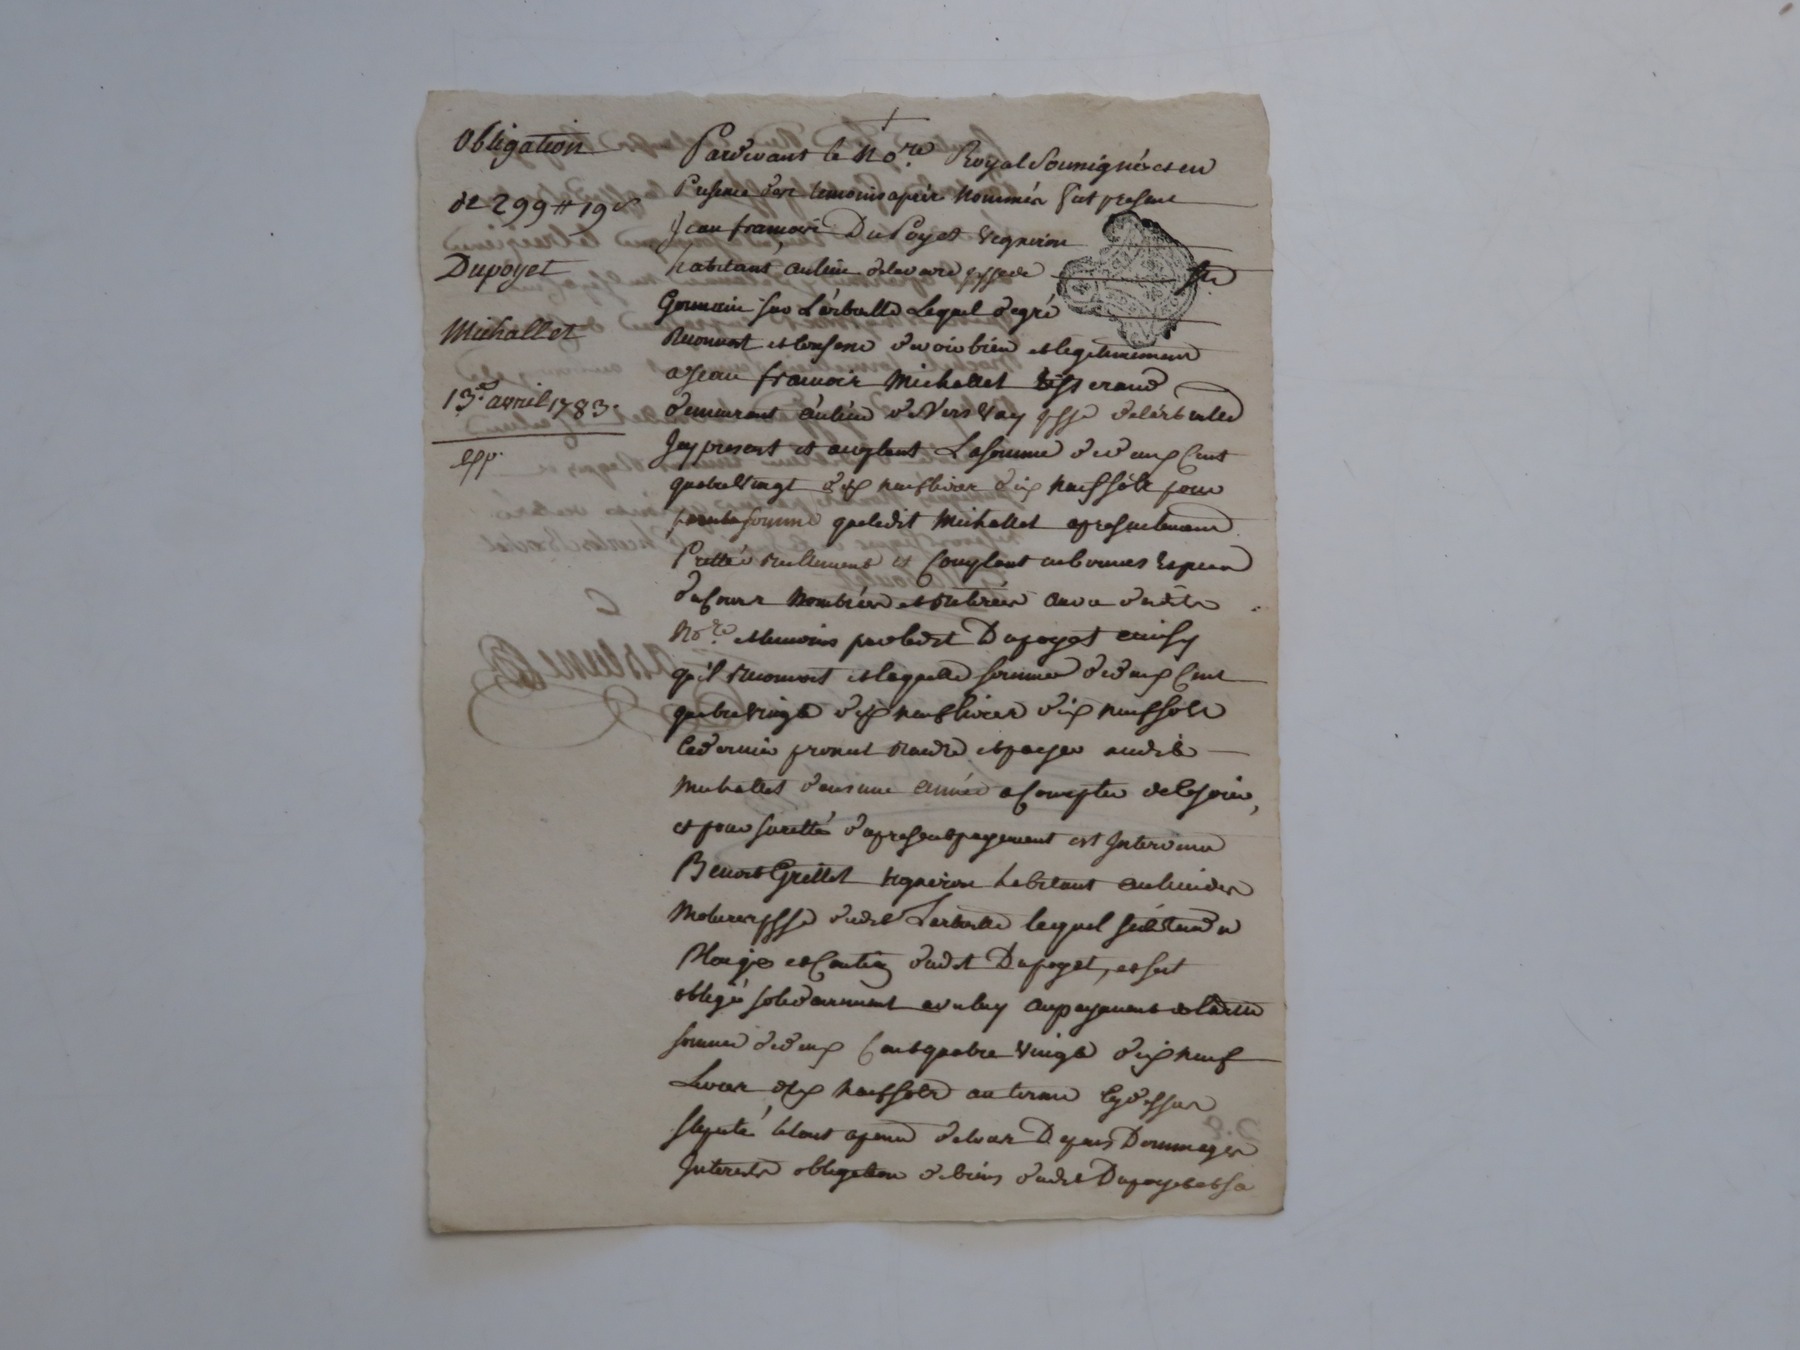 Obligation
de 299 ## 19 s
Dupoyet
Michallet
13.e avril 1783.
exp.
Pardevant le No.re Royal Sousigné et en
Presence des temoins apres nommés fut present
Jean françois DuPoyet vigneron
habitant au lieu de parsse de St
Germain sur L'arbresle Lequel de gré
Reconnoit et confesse devoir bien et legitimement
a Jean françois Michallet tisserand
demeurant au lieu de Vers parsse de l'arbresle
Icy present et acceptant La somme de deux Cent
quatre vingt dix neuf livres dix neuf sols pour
somme que ledit Michallet a presentement
Pretté réellement et Comptant en bonnes Especes
de Cours Nombrées et retirées au vu dudit
No.re et temoins par ledit Dupoyet ainsy
qu'il reconnoit et laquelle somme de deux Cent
quatre vingt dix neuf livres dix neuf sols
Ce dernier promet rendre et payer audit
Michallet dans une année a Compter de ce jour,
et pour suretté du present payement est Intervenu
Benoit Grillet vigneron habitant au lieu des
parsse dudit Larbresle lequel s'est rendu
Pleige et Caution dudit Dupoyet, et s'est
obligé solidairement avec luy au payement de laditte
somme de deux Cent quatre vingt dix neuf
Livres dix neuf sols au terme Cy dessus
stipulé le tout a peine de tous Depens Dommages
Interets obligation de biens dudit Dupoyet et sa